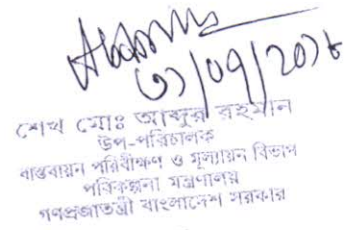 ৩১/০৭/২০১৮
শেখ মোঃ আব্দুর রহমান
উপ-পরিচালক
বাস্তবায়ন পরিবীক্ষণ ও মূল্যায়ন বিভাগ
পরিকল্পনা মন্ত্রণালয়
গণপ্রজাতন্ত্রী বাংলাদেশ সরকার